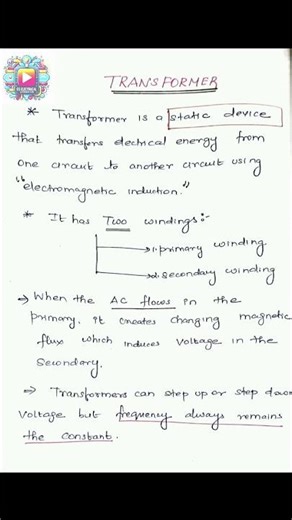 TRANSFORMER
* Transformer is a static device
that transfers electrical energy from
one circuit to another circuit using
"electromagnetic induction."
* It has Two windings:-
→1.primary winding.
→2.secondary winding
→ When the AC flows in the
primary, it creates changing magnetic
flux which induces voltage in the
Secondary.
→ Transformers can step up or step down
voltage but frequency always remains
the constant.